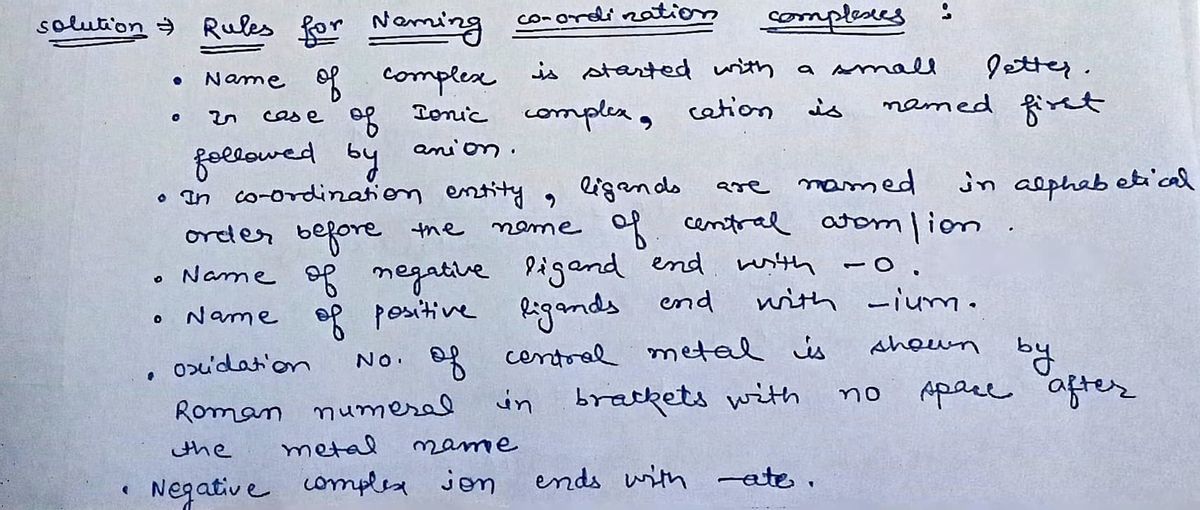 solution ⇒ Rules for Naming co-ordination complexes :
• Name of complex is started with a small letter.
• In case of Ionic complex, cation is named first
followed by anion.
• In co-ordination entity, ligands are named in alphabetical
order before the name of central atom/ion.
• Name of negative ligand end with -o.
• Name of positive ligands end with -ium.
• oxidation No. of central metal is shown by
Roman numeral in brackets with no space after
the metal name
• Negative complex ion ends with -ate.